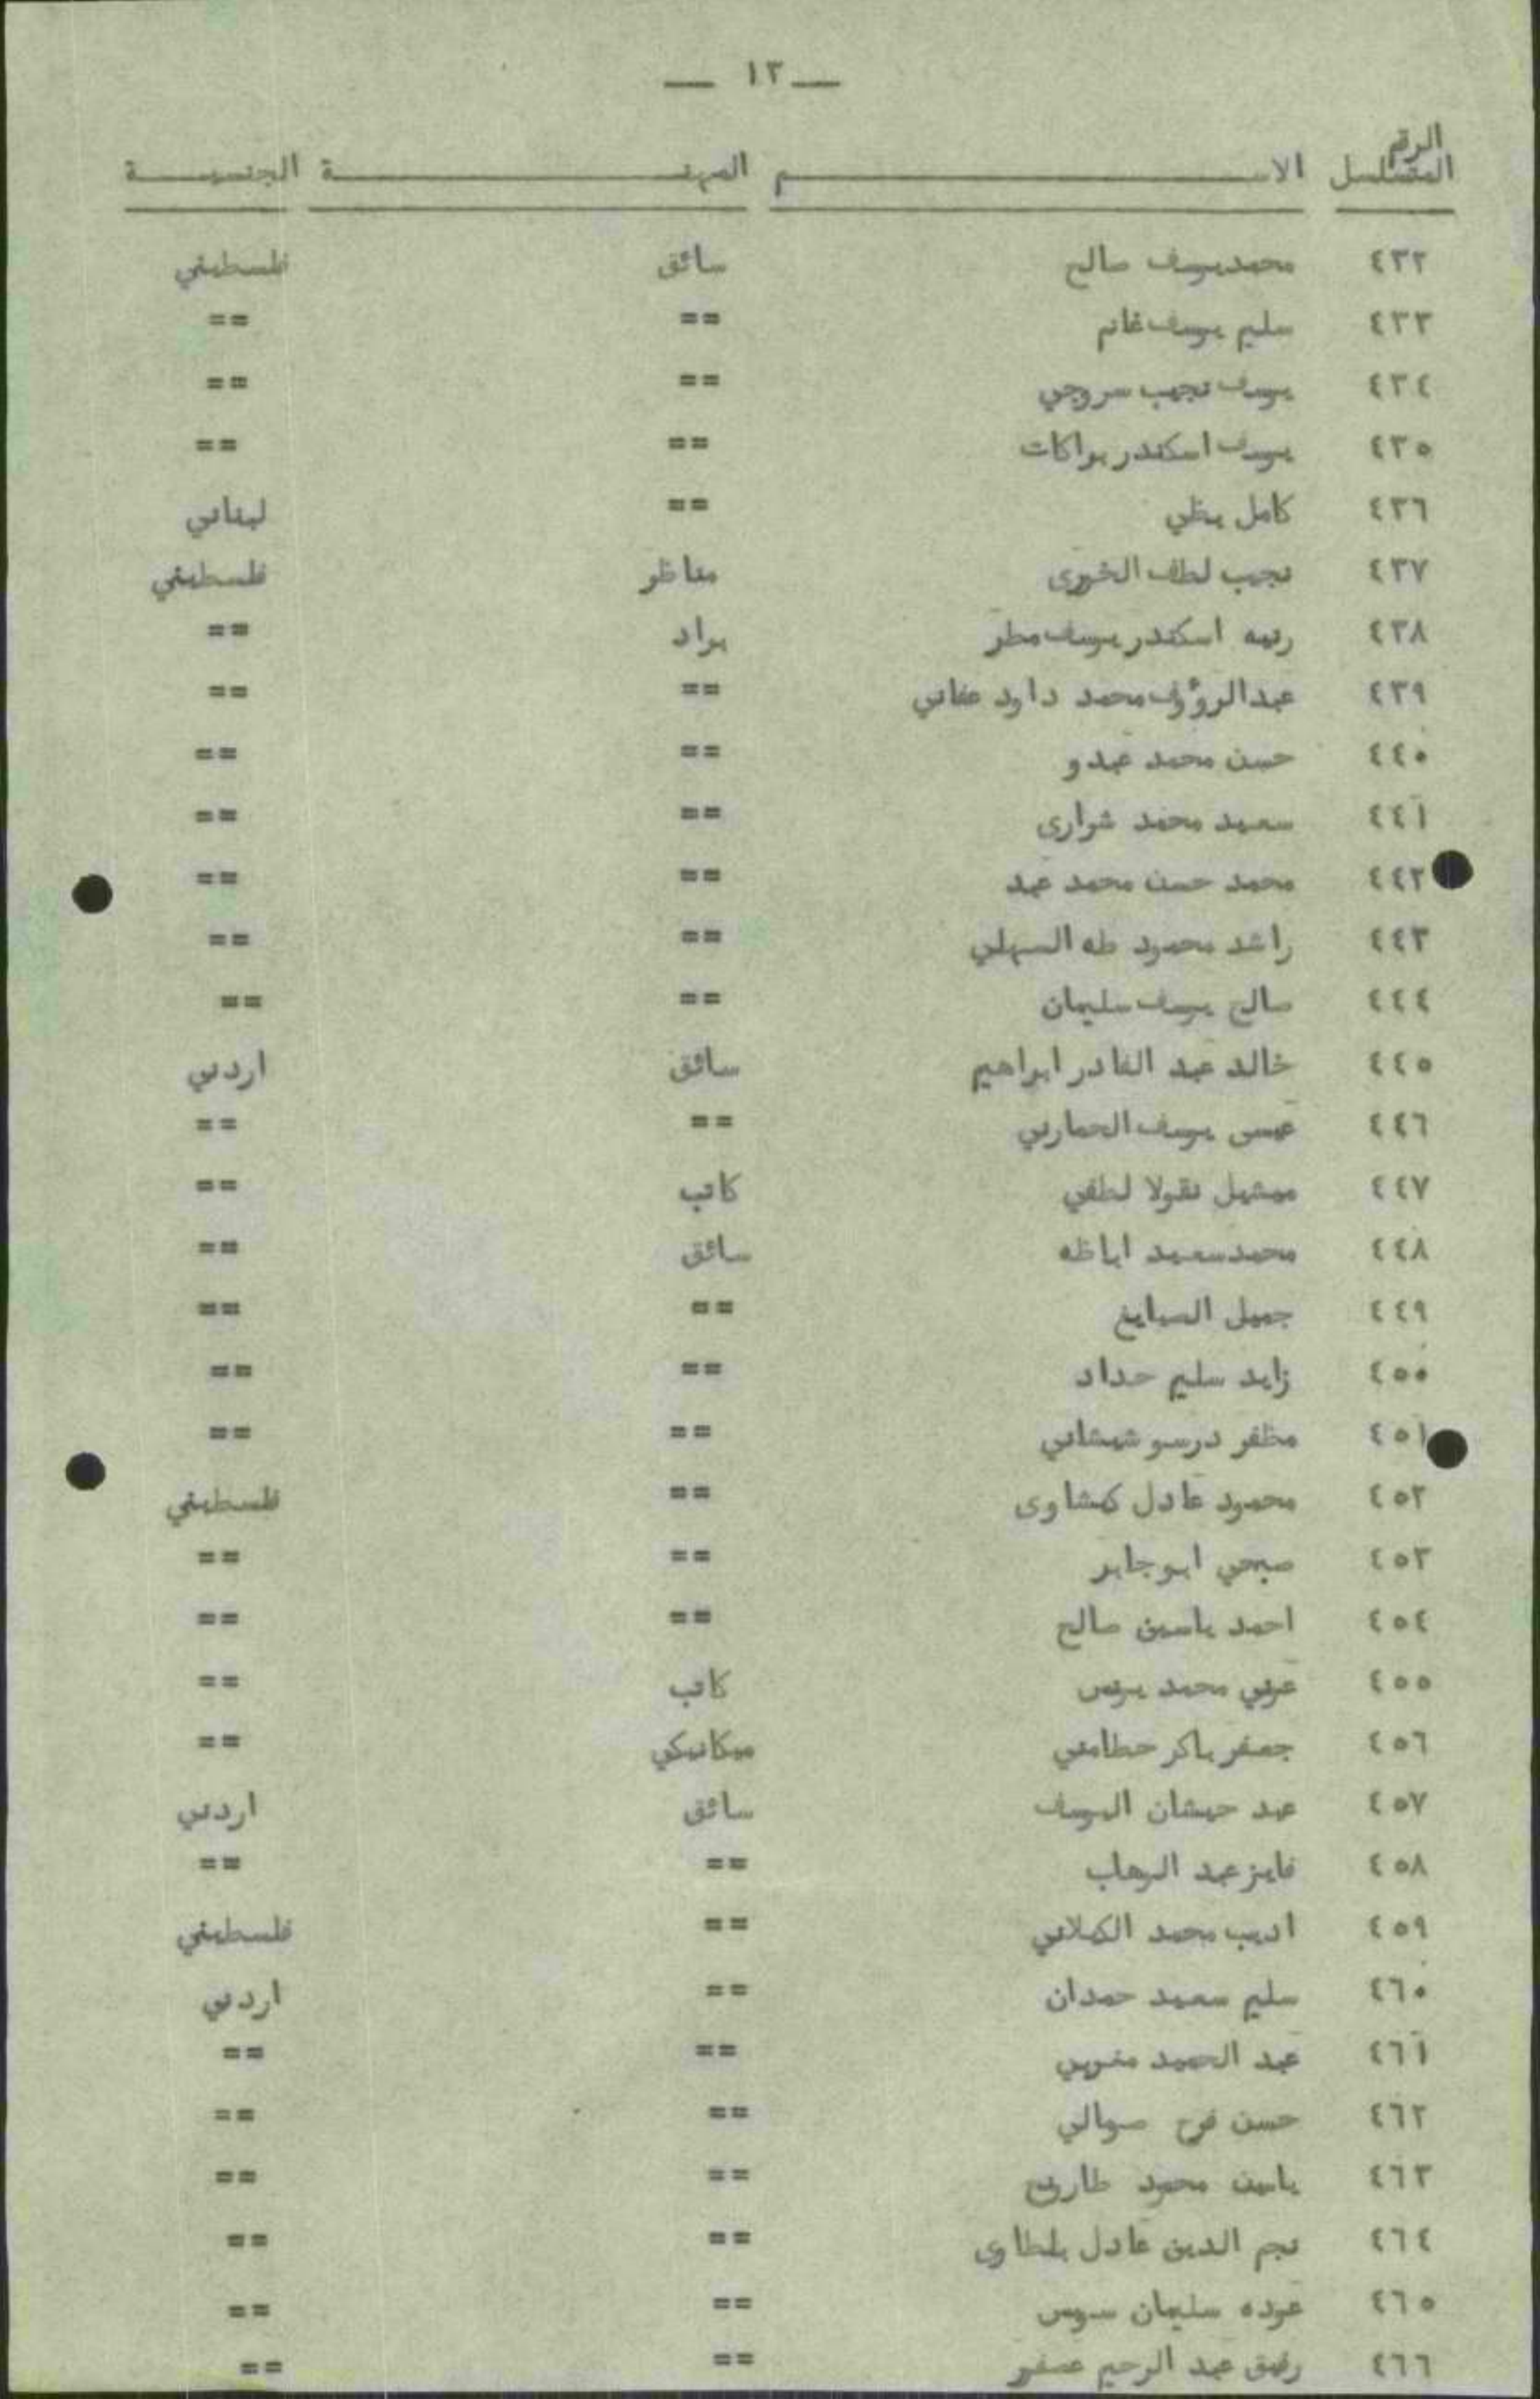 — ١٣ —
الرقم المتسلسل الاسم المهنة الجنسية
٤٣٢ محمد يوسف صالح سائق فلسطيني
٤٣٣ سليم يوسف غانم == ==
٤٣٤ يوسف نجيب سروجي == ==
٤٣٥ يوسف اسكندر بواكات == ==
٤٣٦ كامل == لبناني
٤٣٧ نجيب لطف الخوري مناظر فلسطيني
٤٣٨ رتيبه اسكندر يوسف مطر براد ==
٤٣٩ عبدالرؤوف محمد داود عناني == ==
٤٤٠ حسن محمد عبدو == ==
٤٤١ سعيد محمد شراري == ==
٤٤٢ محمد حسن محمد عبد == ==
٤٤٣ راشد محمود طه السهلي == ==
٤٤٤ صالح يوسف سليمان == ==
٤٤٥ خالد عبد القادر ابراهيم سائق اردني
٤٤٦ عيسى يوسف الحمارني == ==
٤٤٧ ميشيل نقولا لطفي كاتب ==
٤٤٨ محمد سعيد اباظه سائق ==
٤٤٩ جميل الصايغ == ==
٤٥٠ زايد سليم حداد == ==
٤٥١ مظفر درسو شيشاني == ==
٤٥٢ محمود عادل كمشاوى == فلسطيني
٤٥٣ صبحي ابو جابر == ==
٤٥٤ احمد ياسين صالح == ==
٤٥٥ عوني محمد يونس كاتب ==
٤٥٦ جعفر باكر حطامي ميكانيكي ==
٤٥٧ عيد حيشان اليوسف سائق اردني
٤٥٨ فايز عبد الوهاب == ==
٤٥٩ اديب محمد الكيلاني == فلسطيني
٤٦٠ سليم سعيد حمدان == اردني
٤٦١ عبد الحميد مغربي == ==
٤٦٢ حسن فرح صومالي == ==
٤٦٣ ياسين محمود == ==
٤٦٤ نجم الدين عادل بلطاوى == ==
٤٦٥ عوده سليمان سويس == ==
٤٦٦ رفيق عبد الرحيم عصفور == ==